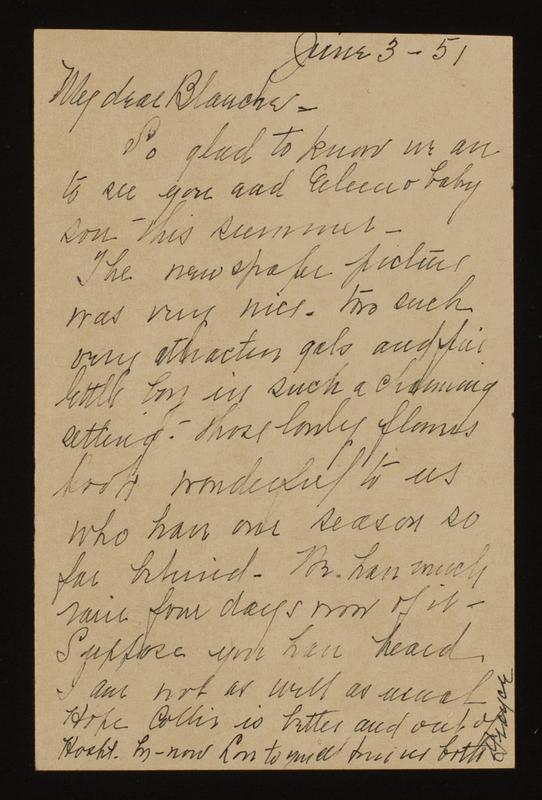 June 3 - 51
My dear Blanche -
So glad to know we are
to see you and Eileen & baby
son this summer -
The newspaper picture
was very nice - two such
very attractive gals and fine
little boy in such a charming
setting - Those lovely flowers
look wonderful to us
who have our season so
far behind - We have much
rain four days now of it -
Suppose you have heard
I am not as well as usual
Hope Collis is better and out of
Hospt. by now Love to you from us both